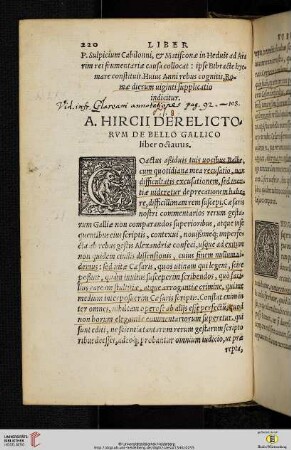 220 LIBER
P. Sulpicium Cabilloni, & Matiscone in Heduis ad fru
mentariæ causa collocat: ipse Bibracte hye
mare constituit. Huius Anni rebus cognitis, Ro
mæ dierum uiginti supplicatio
indicitur.
Vid. infr. Glareani annotationes pag. 92. — 108.
A. HIRCII DERELICTO-
RVM DE BELLO GALLICO
liber octauus.
Coactus assiduis tuis uocibus Balbe,
cum quotidiana mea recusatio, non
difficultatis excusationem, sed inertiæ
uideretur deprecationem habe
re, difficillimam rem suscepi. Cæsaris
nostri commentarios rerum gesta
rum Galliæ non comparandos superioribus, atque inse
quentibus eius scriptis, contexui, nouissimumque imperfe
ctum ab rebus gestis Alexandriæ confeci, usque ad exitum
non quidem ciuilis dissensionis, cuius finem nullum ui
demus: sed uitæ Cæsaris, quos utinam qui legent, scire
possint, quàm inuitus susceperim scribendos, quo faci
lius caream stultitiæ, atque arrogantiæ crimine, qui me
medium interposuerim Cæsaris scriptis. Constat enim in
ter omnes, nihil tam operosè ab alijs esse perfectum, quod
non horum elegantia commentariorum superetur, qui
sunt editi, ne scientia tantarum rerum gestarum scripto
ribus deesset, adeoque probantur omnium iudicio, ut præ
repta,
UNIVERSITÄTS-
BIBLIOTHEK
HEIDELBERG
© Universitätsbibliothek Heidelberg
Baden-Württemberg